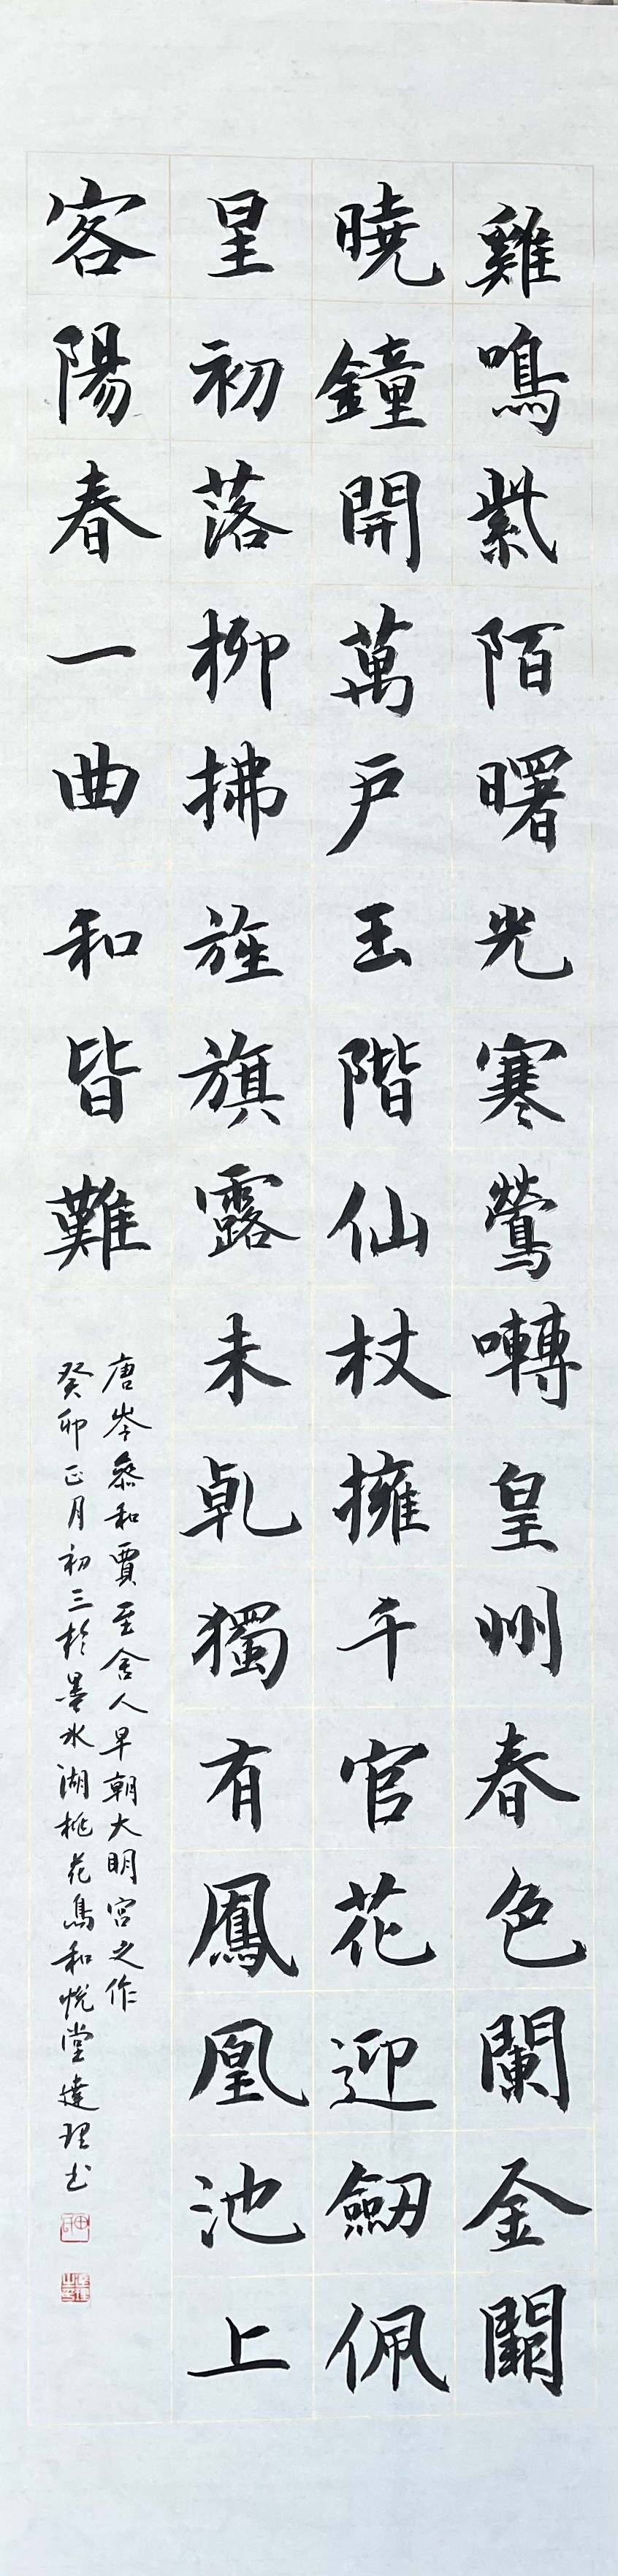 雞鳴紫陌曙光寒鶯囀皇州春色闌金闕
曉鐘開萬戶玉階仙杖擁千官花迎劒佩
星初落柳拂旌旗露未乹獨有鳳凰池上
客陽春一曲和皆難
唐岑參和賈至舍人早朝大明宮之作
癸卯正月初三於墨水湖桃花鳥和悅堂達理书